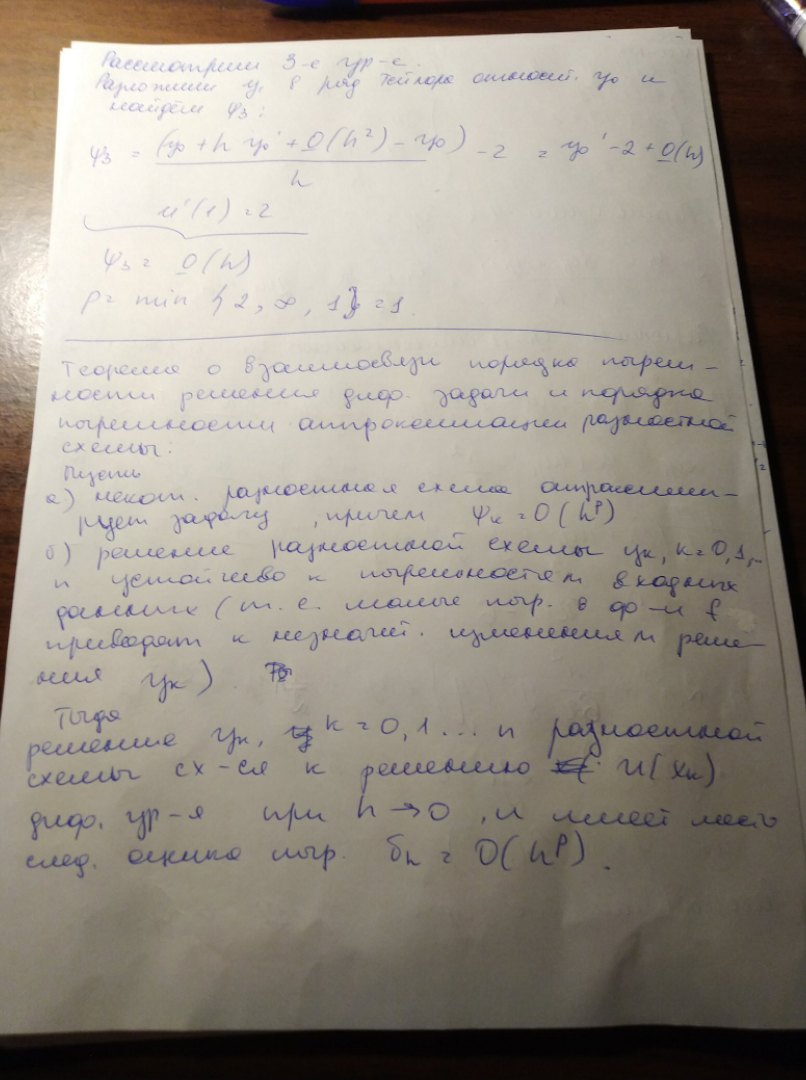 Рассмотрим 3-е ур-е.
Разложим y₁ в ряд Тейлора относит. y₀ и
найдём ψ₃:
ψ₃ = (y₀ + h y₀' + O(h²) - y₀) / h - 2 = y₀' - 2 + O(h)
u'(1) = 2
ψ₃ = O(h)
p = min {2, ∞, 1} = 1.
Теорема о взаимосвязи порядка погреш-
ности решения диф. задачи и порядка
погрешности аппроксимации разностной
схемы:
Пусть
а) некот. разностная схема аппроксими-
рует задачу, причем ψₖ = O(hᵖ)
б) решение разностной схемы yₖ, k = 0, 1, ..
n устойчиво к погрешностям входных
данных (т.е. малые погр. в ф-и f
приводят к незначит. изменениям реше-
ния yₖ).
Тогда
решение yₖ, k = 0, 1 ... n разностной
схемы сх-ся к решению u(xₖ)
диф. ур-я при h → 0, и имеет место
след. оценка погр. δₖ = O(hᵖ).